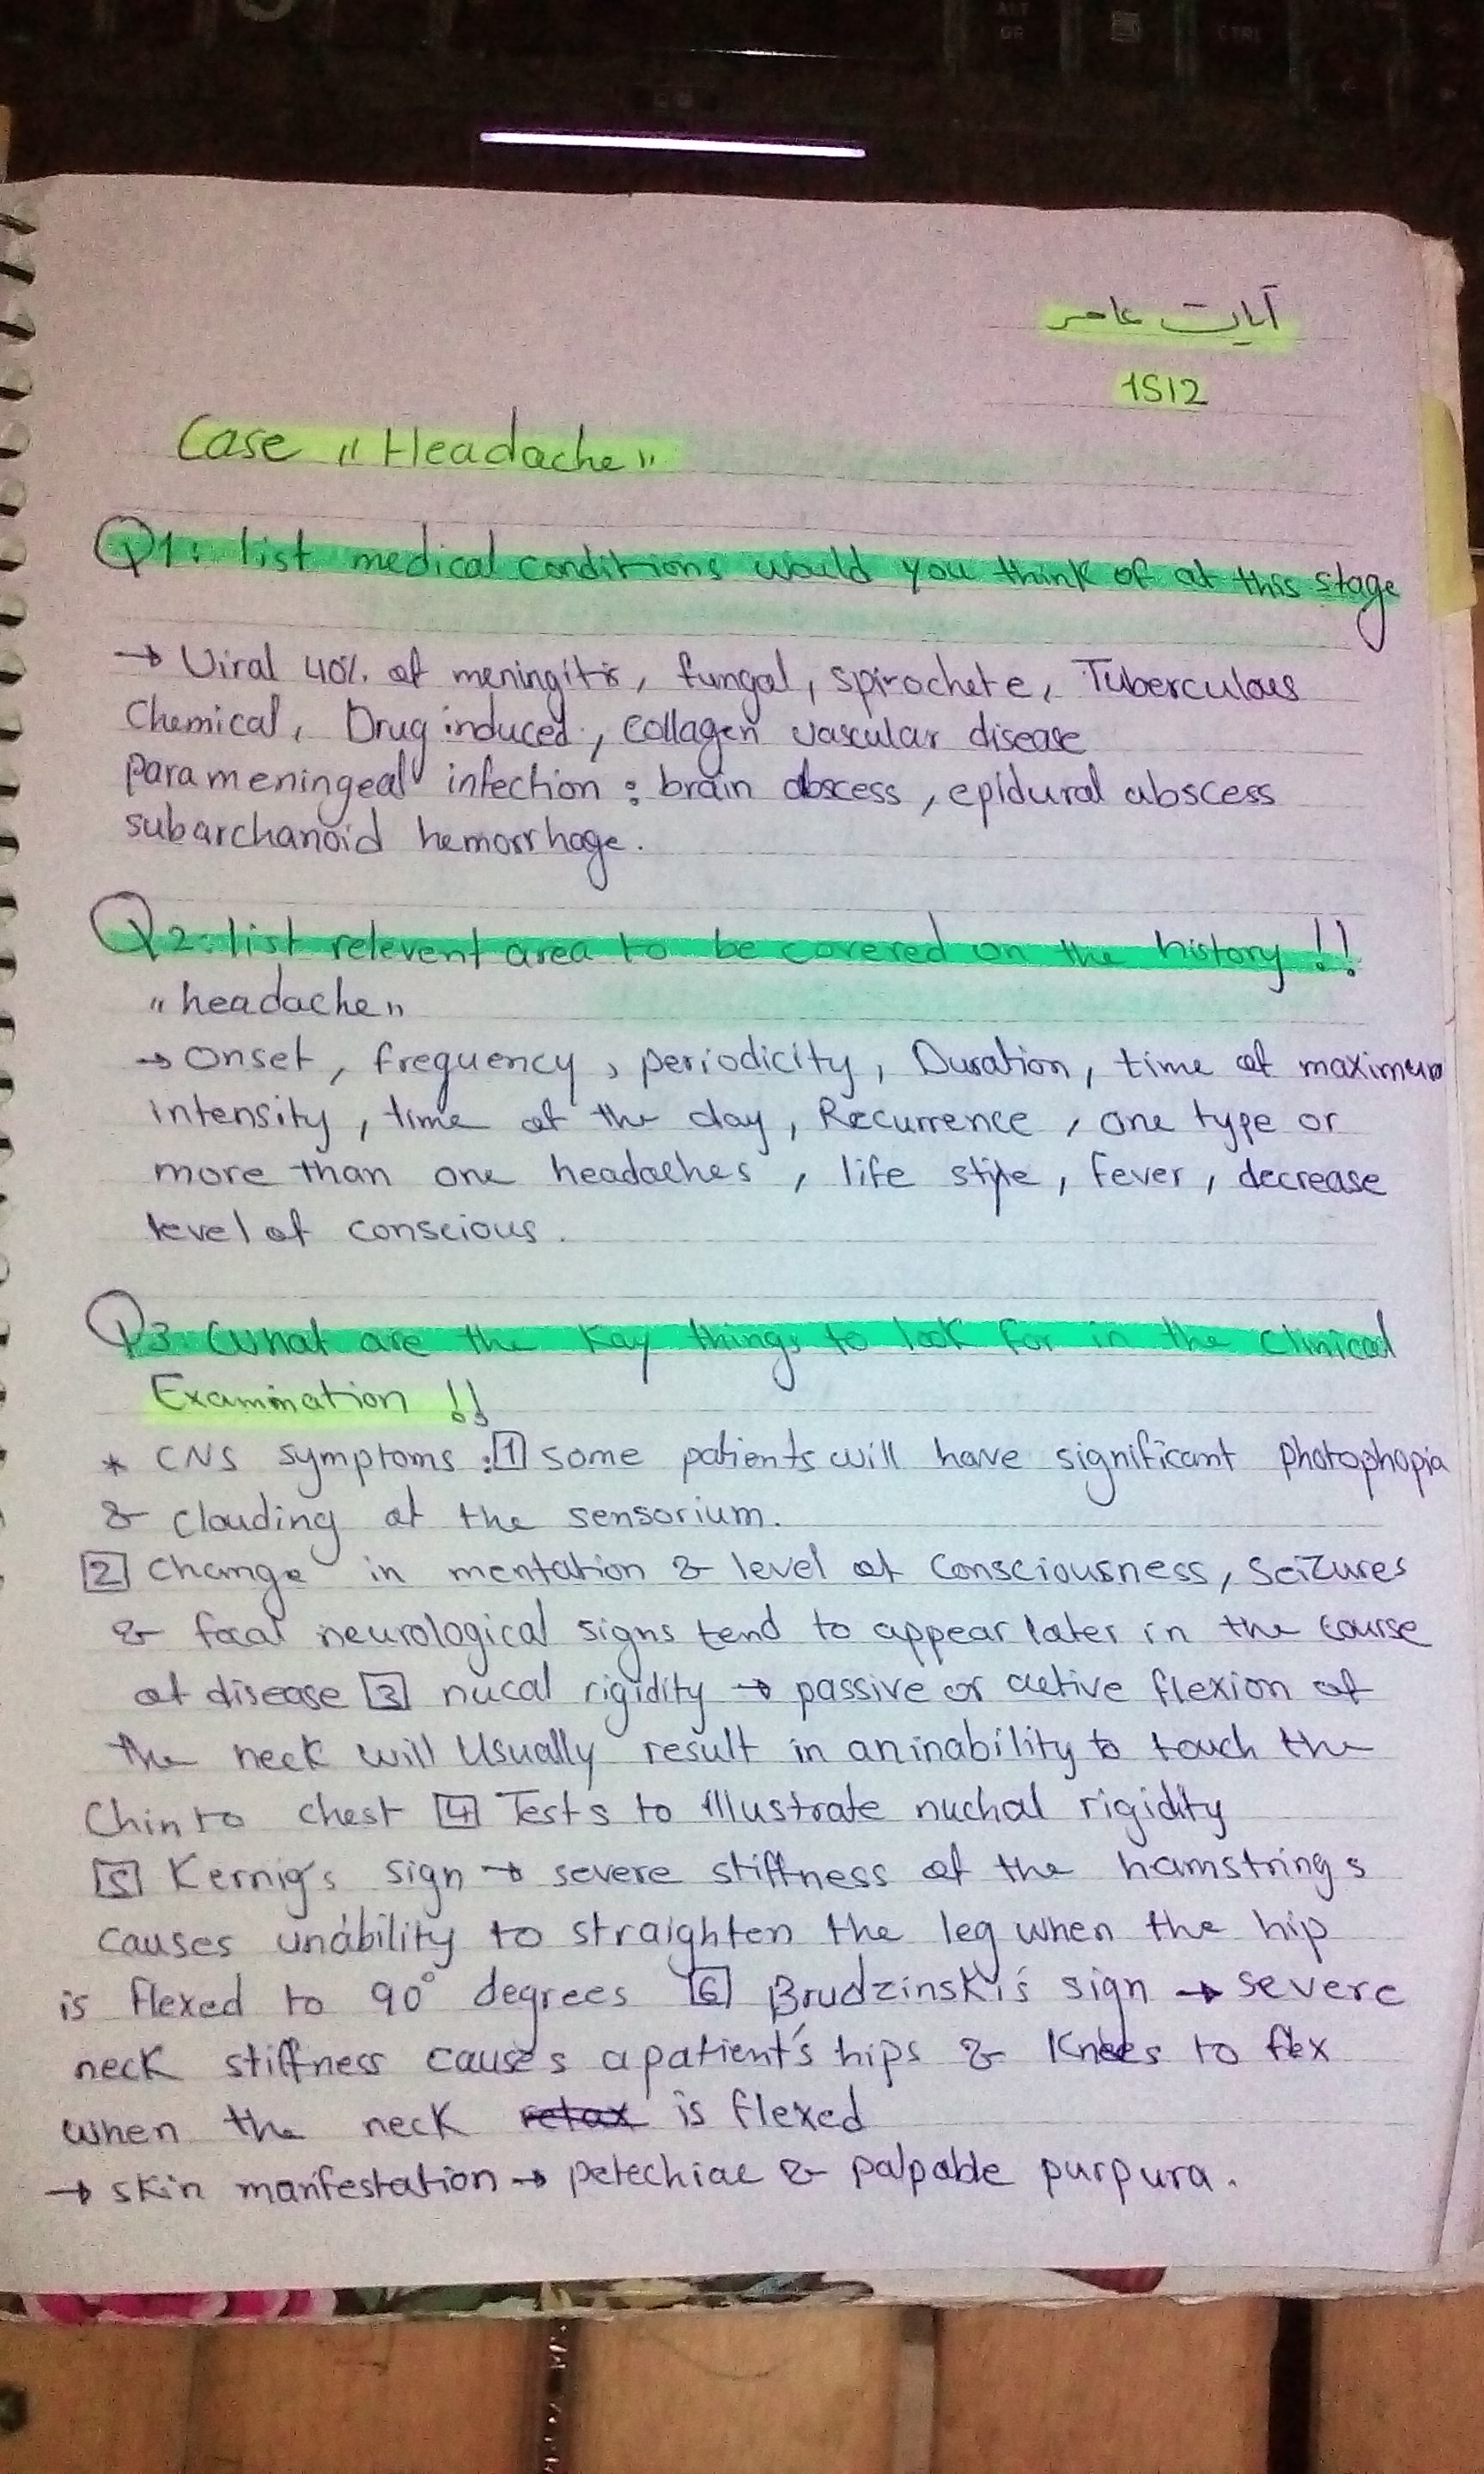 آيات عامر
1512
Case "Headache"
Q1: list medical conditions would you think of at this stage
→ Viral 40% of meningitis, fungal, spirochete, Tuberculous
Chemical, Drug induced, collagen vascular disease
parameningeal infection : brain abscess, epidural abscess
subarchanoid hemorrhage.
Q2: list relevent area to be covered on the history !!
"headache"
→ Onset, frequency, periodicity, Duration, time of maximum
intensity, time of the day, Recurrence, one type or
more than one headaches, life style, fever, decrease
level of conscious.
Q3: What are the Key things to look for in the clinical
Examination !!
* CNS symptoms : 1 some patients will have significant photophopia
& clouding of the sensorium.
2 change in mentation & level of Consciousness, Seizures
& focal neurological signs tend to appear later in the course
of disease 3 nucal rigidity → passive or active flexion of
the neck will Usually result in an inability to touch the
Chin to chest 4 Tests to illustrate nuchal rigidity
5 Kernig's sign → severe stiffness of the hamstrings
causes unability to straighten the leg when the hip
is flexed to 90° degrees 6 Brudzinski's sign → severe
neck stiffness causes a patient's hips & Knees to flex
when the neck relax is flexed
→ skin manfestation → petechiae & palpable purpura.